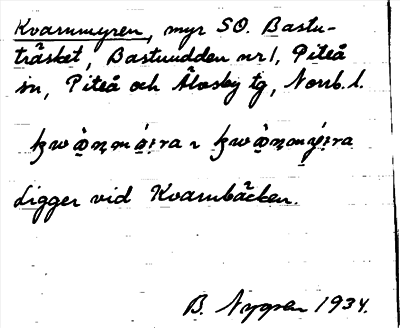 Kvarnmyren, myr SO. Bastu-
träsket, Bastuudden nr 1, Piteå
sn, Piteå och Älvsby tg, Norrb. l.
Ligger vid Kvarnbäcken.
B. Nygren 1934.